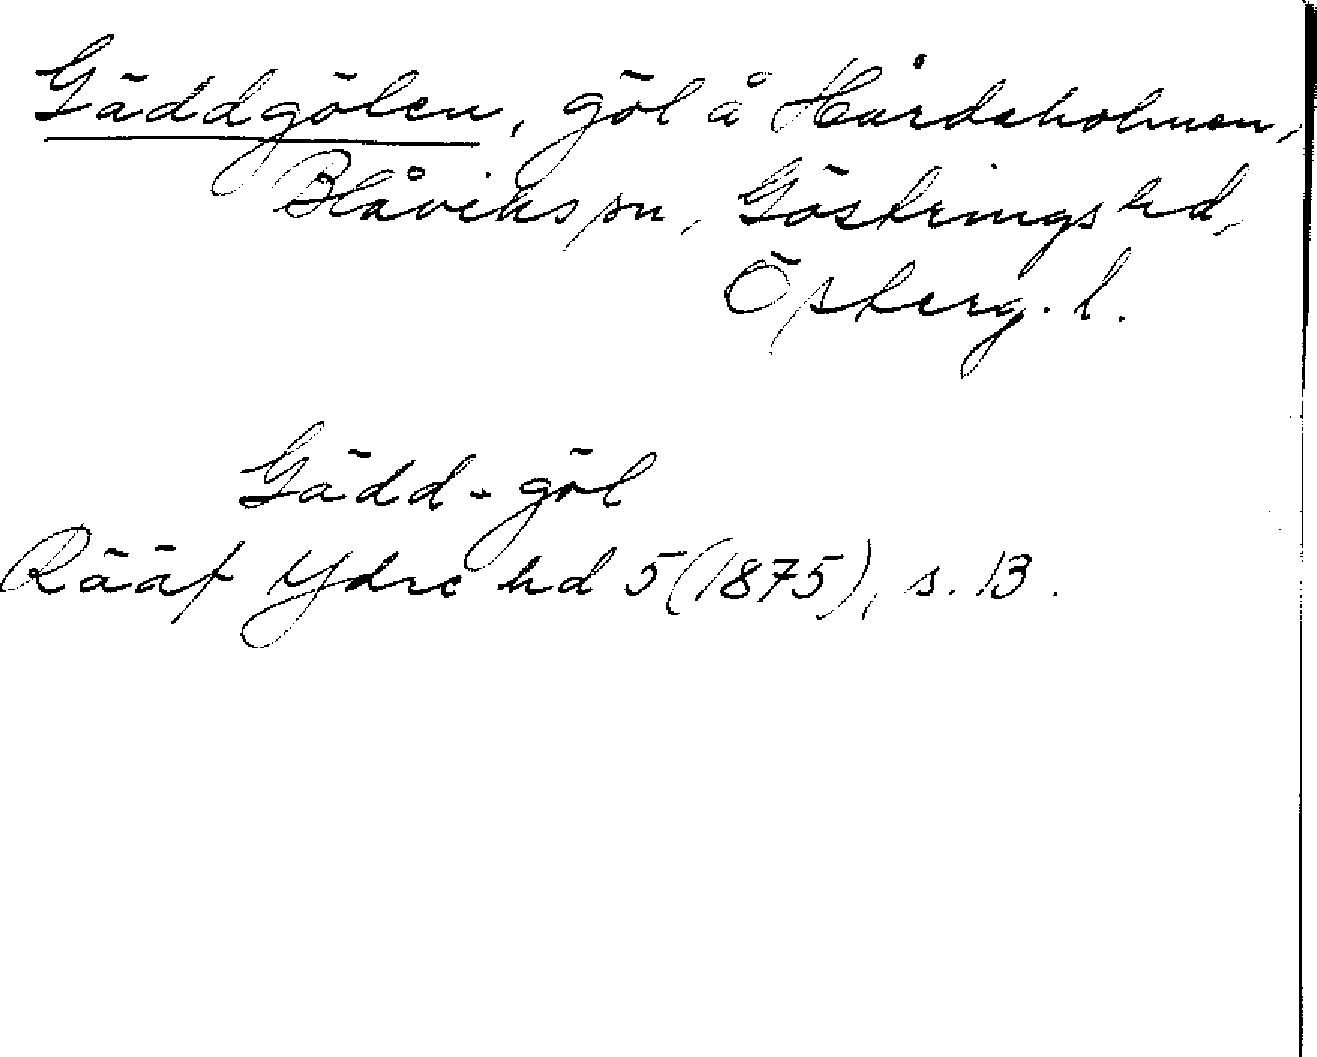 Gäddgölen, göl å Hårdaholmen,
Blåviks sn, Göstrings hd,
Österg. l.
Gädd-göl
Rääf Ydre hd 5 (1875), s. 13.